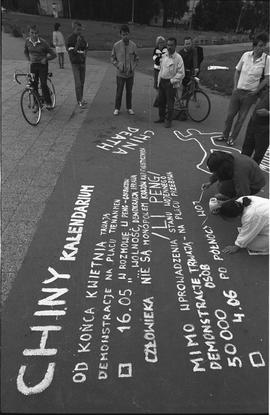 CHINY KALENDARIUM
OD KOŃCA KWIETNIA TRWAJĄ
DEMONSTRACJE NA PLACU TIENANMEN
16.05
WOLNOŚĆ, DEMOKRACJA, PRAWA
CZŁOWIEKA NIE SĄ MONOPOLEM KRAJÓW KAPITALISTYCZNYCH
MIMO WPROWADZENIA STANU WOJENNEGO
DEMONSTRACJE TRWAJĄ - NA PLACU PRZEBYWA
50000 OSÓB
4.06 PO PÓŁNOCY WO
CHINA
DEATH
LI PENG!